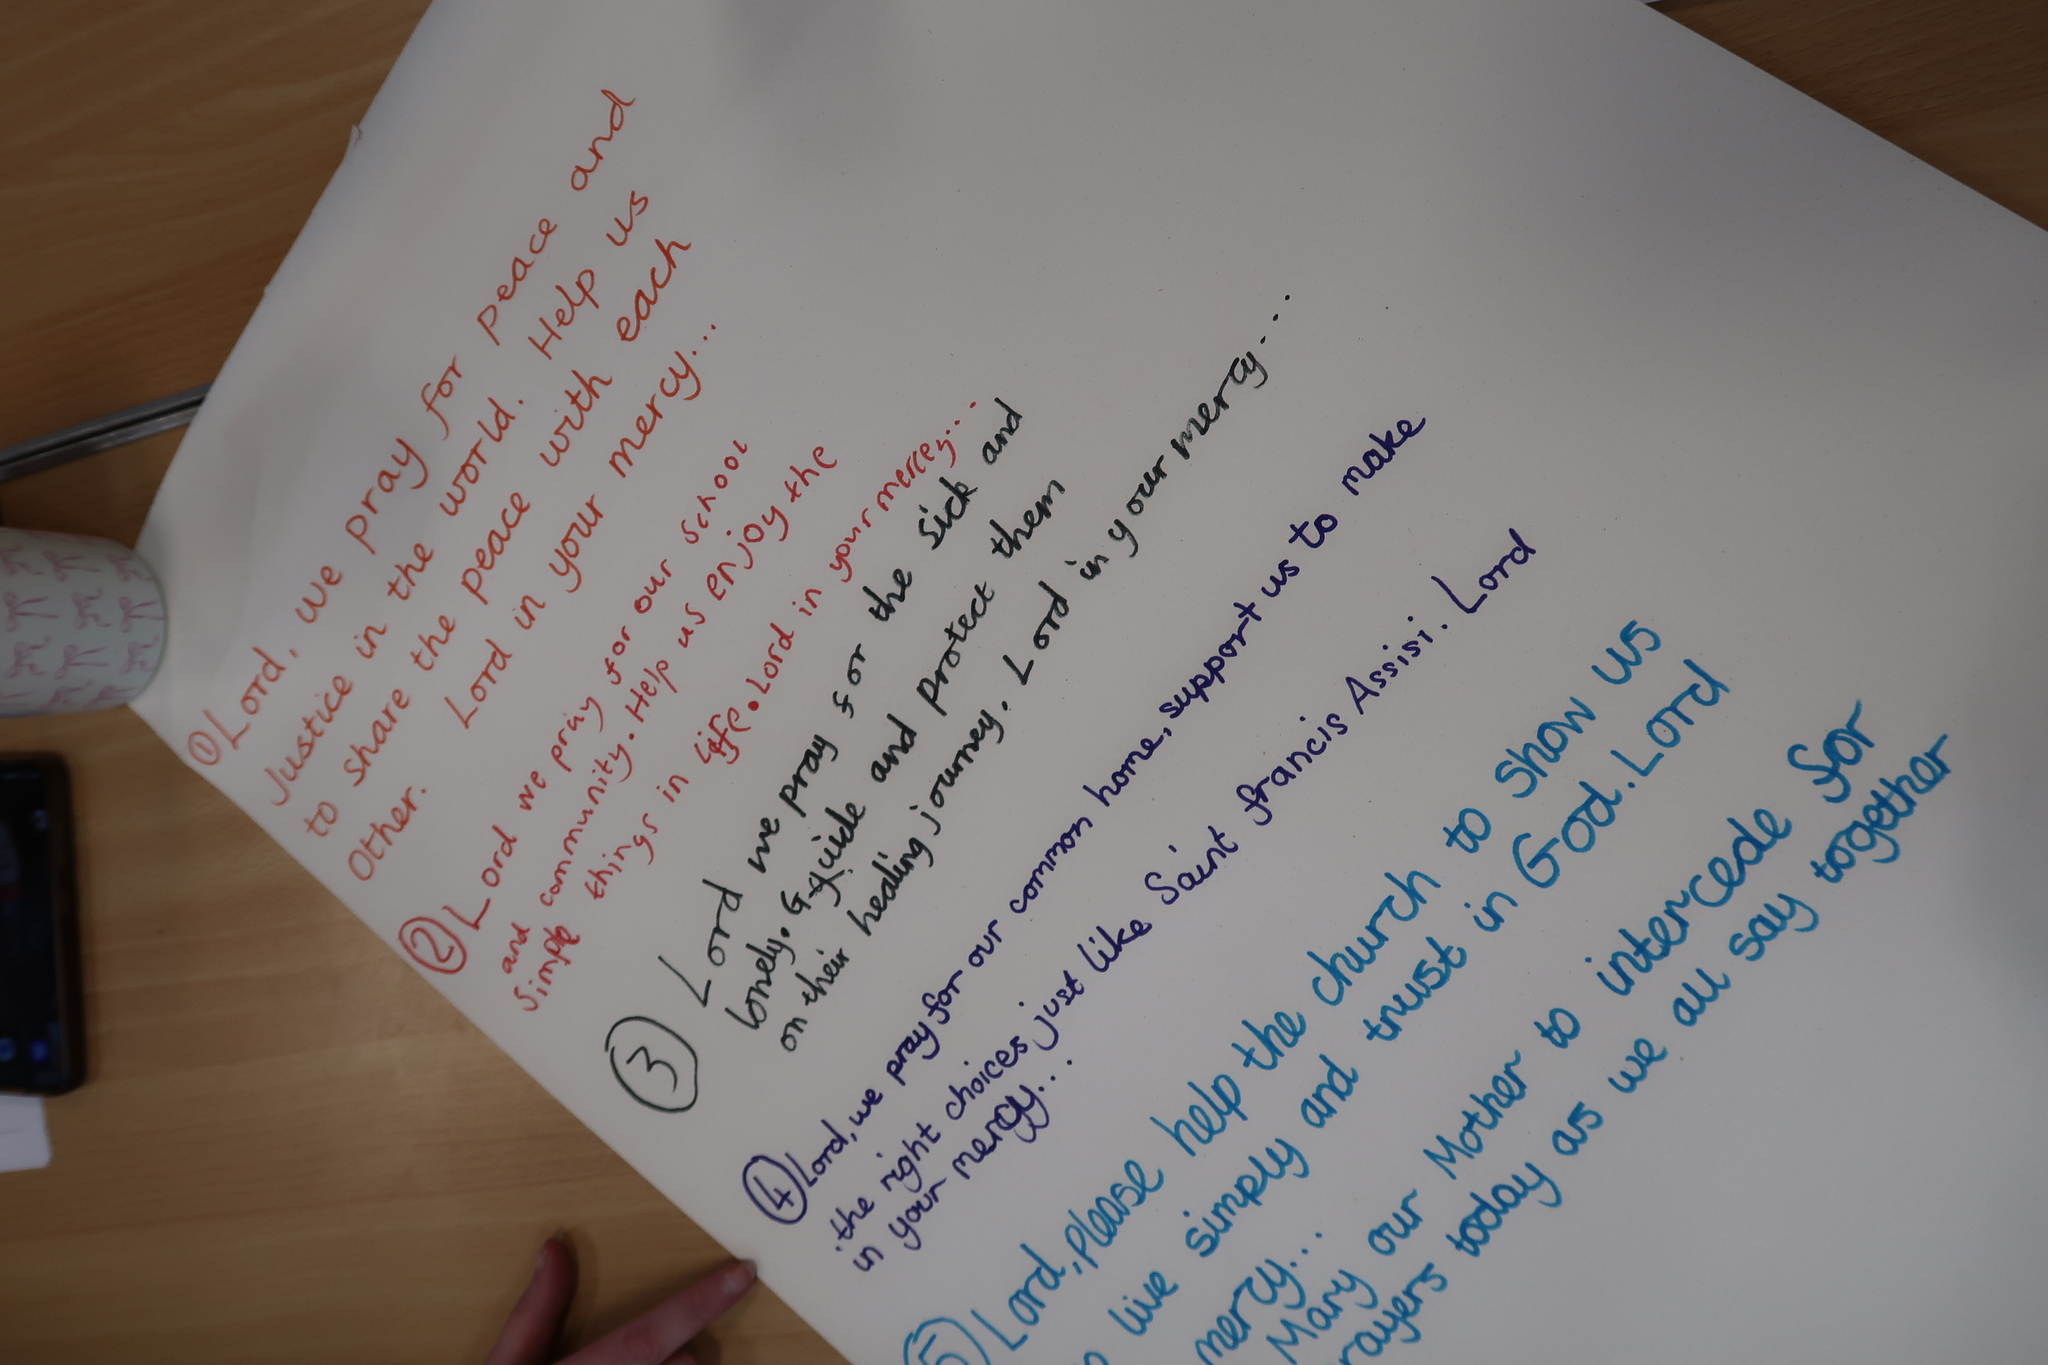 ① Lord, we pray for peace and
Justice in the world. Help us
to share the peace with each
Other. Lord in your mercy...
② Lord we pray for our school
and community. Help us enjoy the
simple things in life. Lord in your mercy...
③ Lord we pray for the sick and
lonely. Guide and protect them
on their healing journey. Lord in your mercy...
④ Lord, we pray for our common home, support us to make
the right choices just like Saint francis Assisi. Lord
in your mercy...
⑤ Lord, please help the church to show us
live simply and trust in God. Lord
mercy...
Mary our Mother to intercede for
rayers today as we all say together